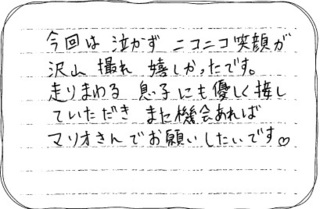 今回は 泣かず ニコニコ笑顔が
沢山 撮れ 嬉しかったです。
走りまわる 息子にも優しく接し
ていただき また機会あれば
マリオさんでお願いしたいです♡